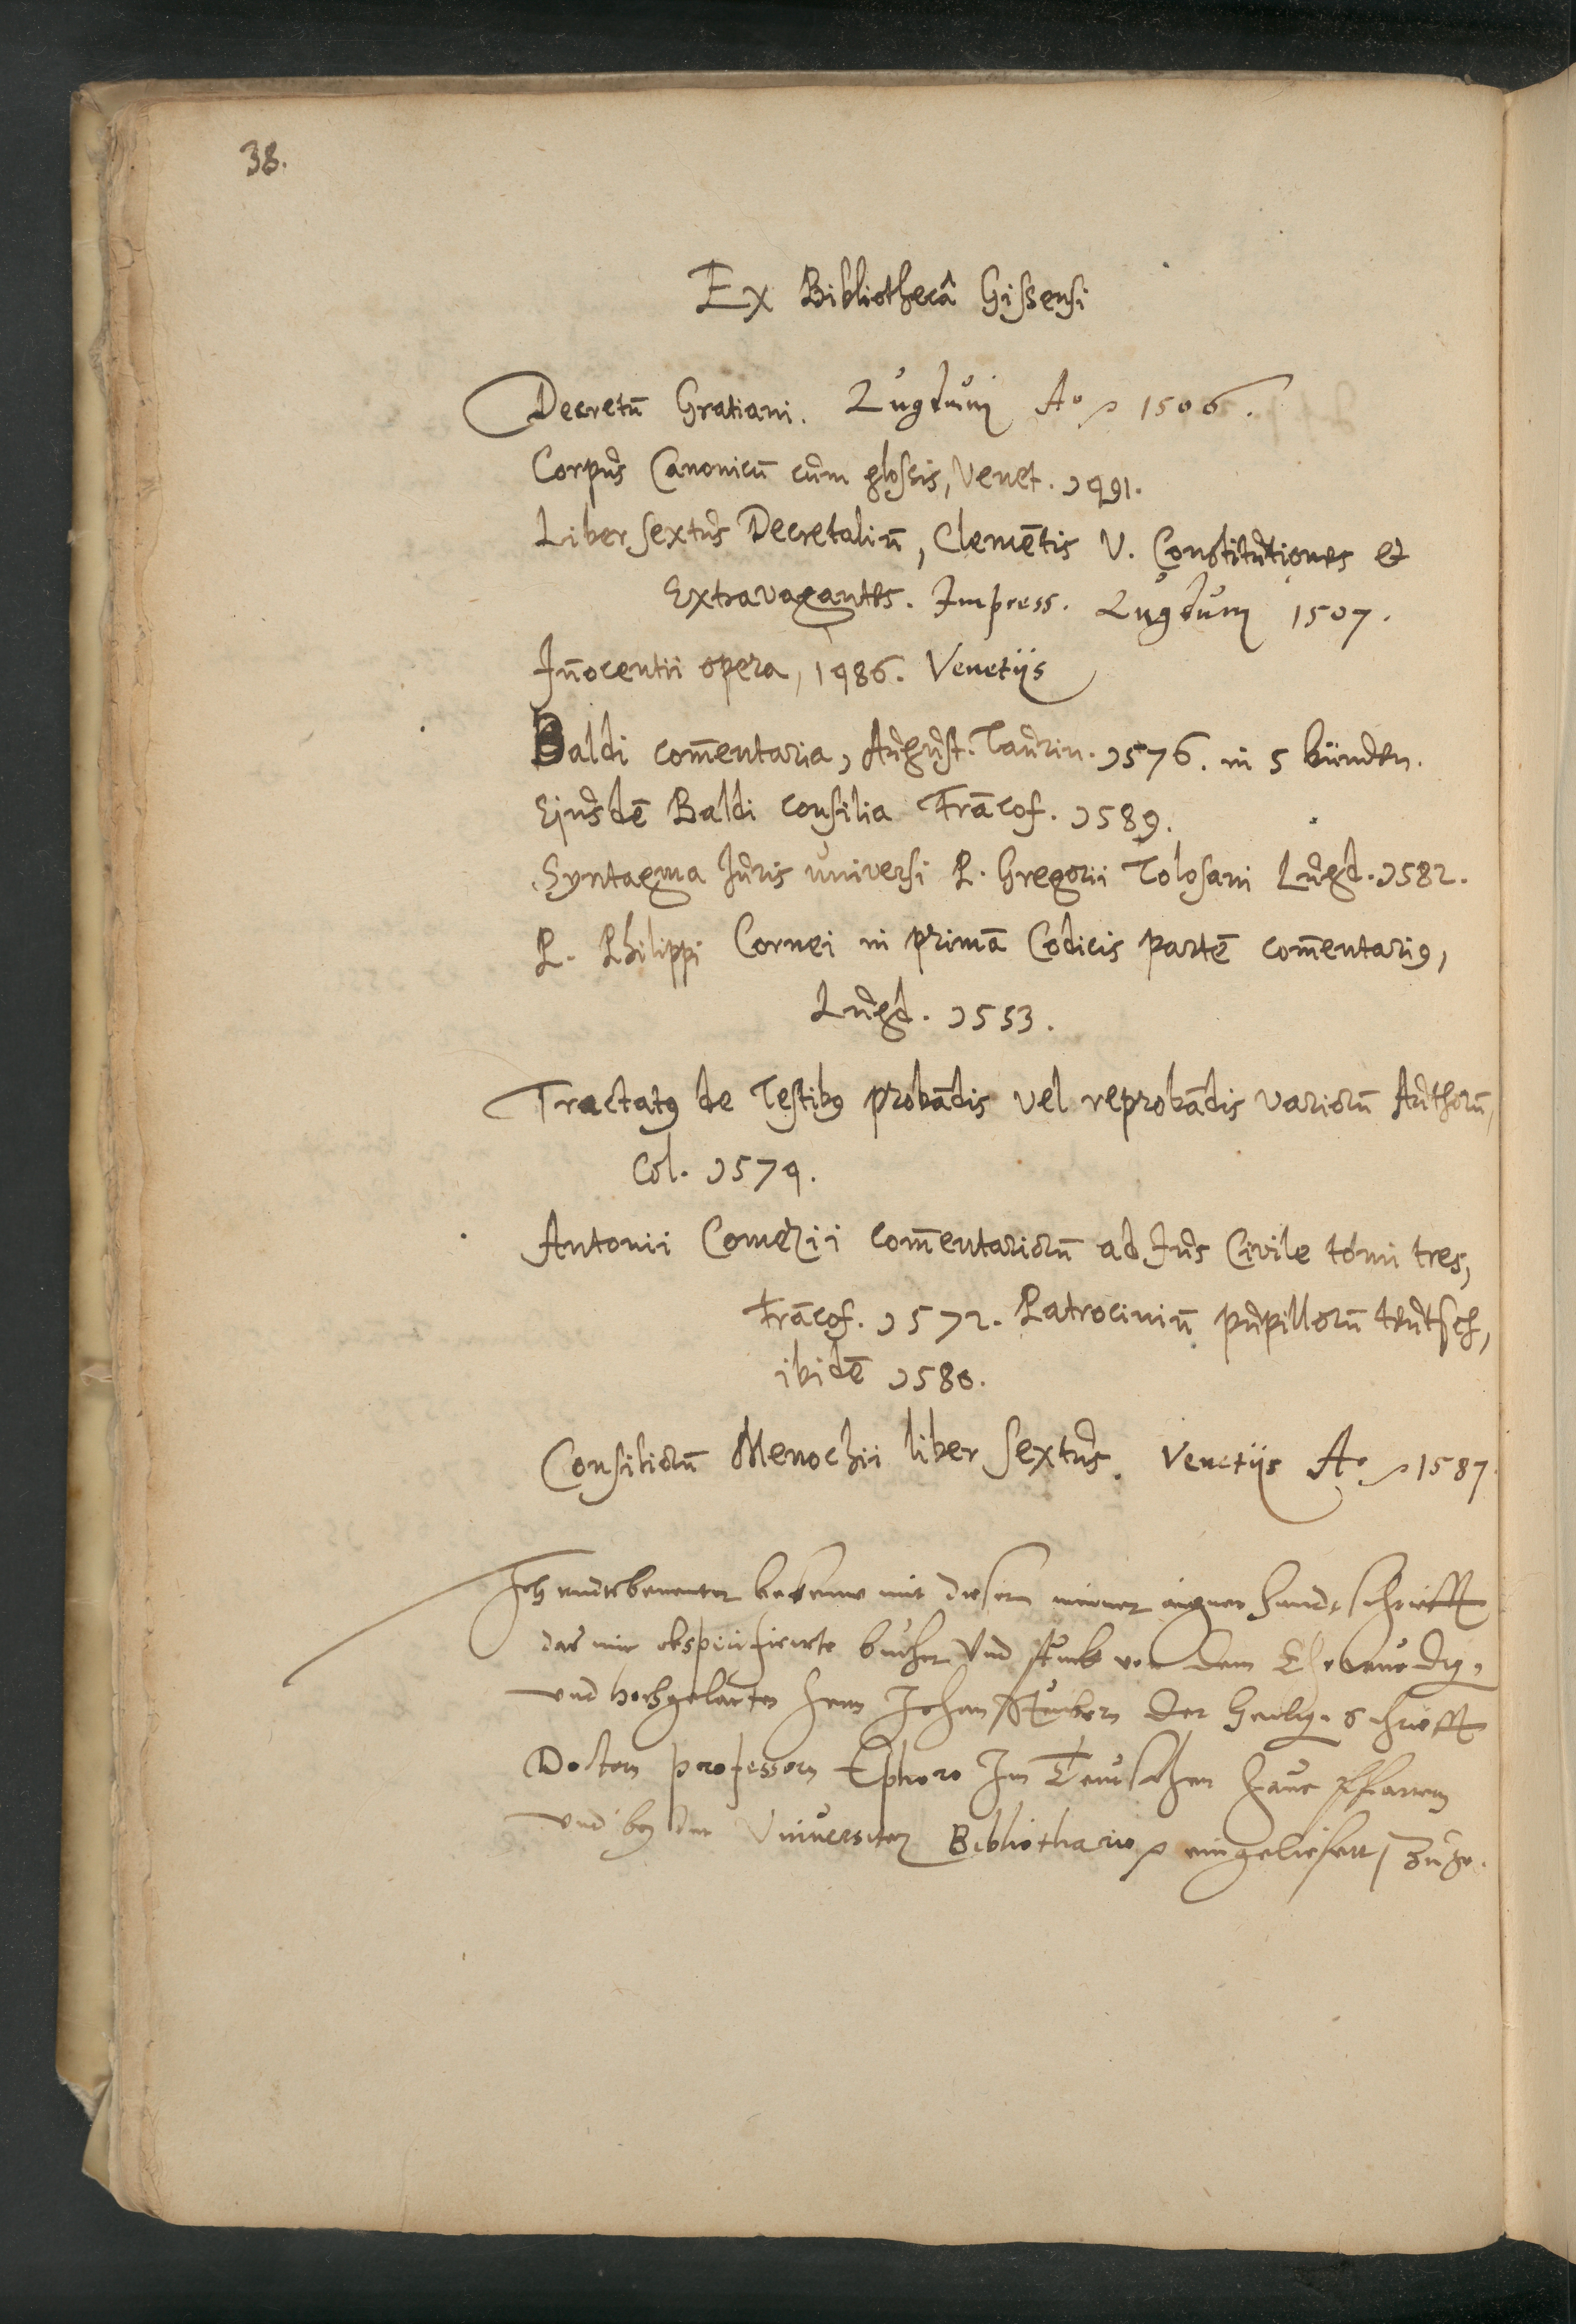 38.
Ex Bibliothecâ Gissensi
Decretū Gratiani. Lugduni Ao 1506.
Corpus Canonicū cum glossis, Venet. 1491.
Liber sextus Decretaliū, Clemētis V. Constitutiones et
Extravagantes. Impress. Lugduni 1507.
Iñocentii opera, 1486. Venetijs
Baldi com̄entaria, August. Taurin. 1576. in 5 bünden.
Ejusdē Baldi consilia Frācof. 1589.
Syntagma Juris universi P. Gregorii Tolosani Lugd. 1582.
P. Philippi Cornei in primā Codicis partē com̄entarig,
Lugd. 1553.
Tractatg de Testibg probādis vel reprobādis variorū Authorū,
Col. 1574.
Antonii Gomezii com̄entariorū ad Jus Civile tomi tres,
Frācof. 1572. Patrociniū pupillorū teutsch,
ibidē 1580.
Consiliorū Menochii liber sextus. Venetijs Ao 1587.
Ich endtsbenenter bekenne mit dieser meiner aigner handtschrifft
das mir obspecificirte bucher Und stuck von dem Ehrwurdig,
und hochgelarten Hern Johan Steubern der Heilig. Schrifft
Doctorn professorn Ephoro Im Teutschen Haus Pfarrern
und bey der Universitet Bibliothario eingelieffert,